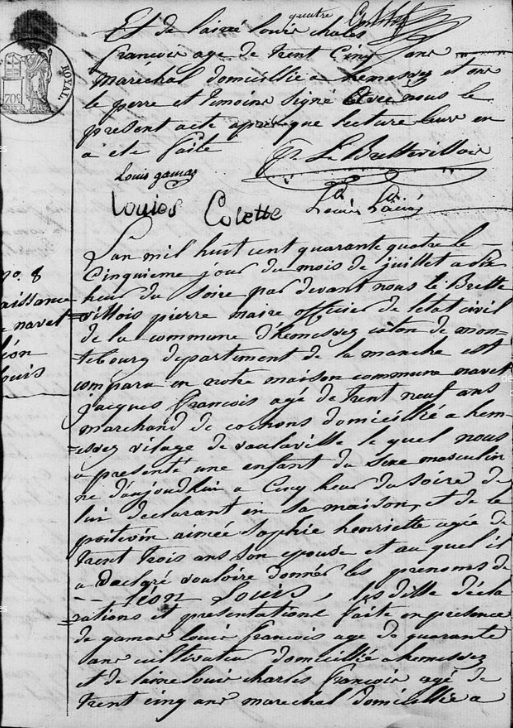 Et de lainé louis chales
francois age de trent Cinq ans
marechal domicillié a hemevez et ont
le perre et temoins signé avec nous le
present acte apres que lecture leur en
a ete faite
Louis gamas
P. Le Brettevillois
Louies Colette
Louis Lainé
ROYAL
Lan mil huit cent quarante quatre le
Cinquieme jour du mois de juillet a six
heur du soire par devant nous le Brette
villois pierre maire officier de letat civil
de la commune d'hemevez caton de mon-
tebourg departement de la manche est
compara en notre maison commune navet
jacques francois age de trent neuf ans
marchand de cochons domicillié a hem-
evez vilage de vaulaville le quel nous
a presenté une enfant du sexe masculin
né d'aujoudhui a Cinq heur du soire de
lui declarant en sa maison, et de le
poitevin aimée Sophie henriette agée de
trent trois ans son epouse et au quel il
a declaré vouloire donner les prenoms de
léon Louis, les ditte decla
rations et presentationt faite en presence
de gamas louis francois age de quarante
ans cultivateur domicillié a hemevez
et de lainé louis charles francois agé de
trent cinq ans marechal domicillié a
no. 8
aissance
navet
léon
louis